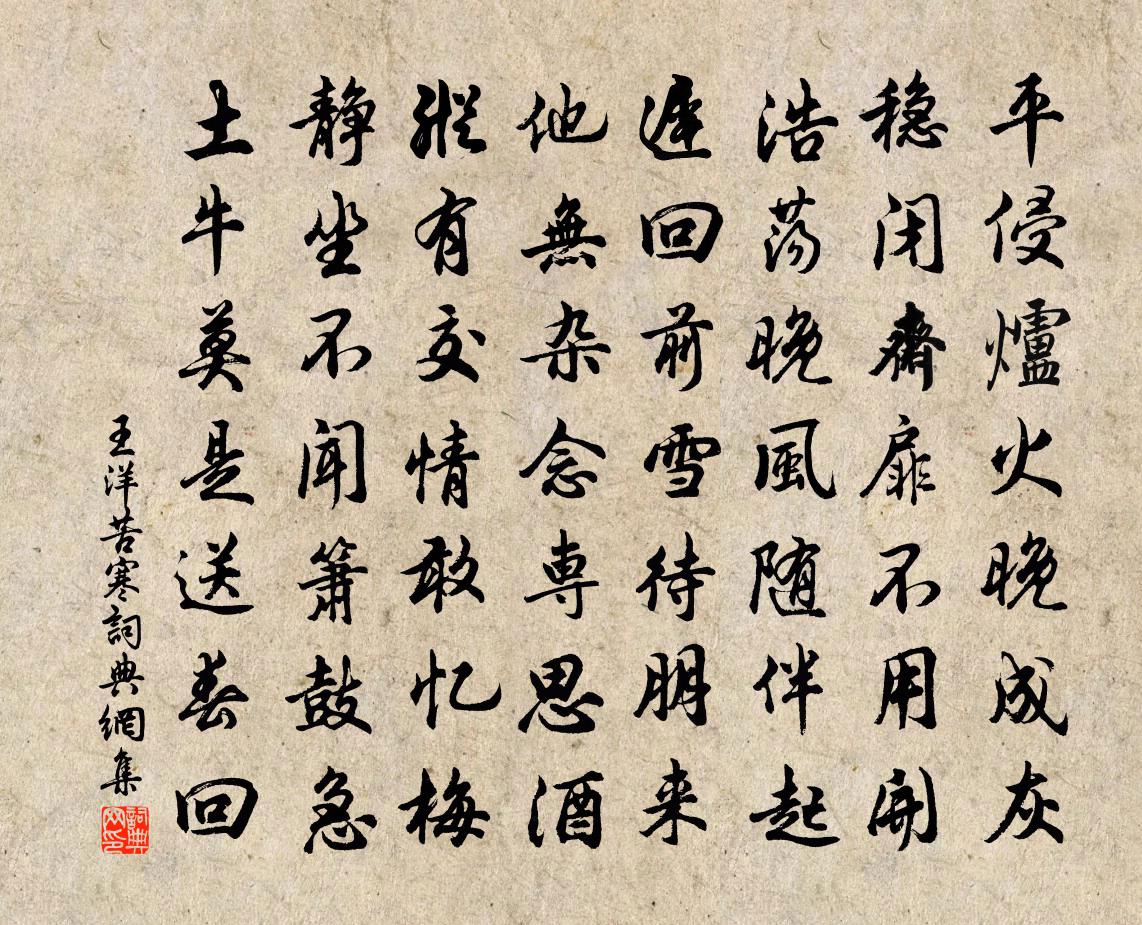 平侵爐火晚成灰
穏闭齋扉不用開
浩荡晚風随伴起
遲回前雪待朋来
他無杂念専思酒
縱有交情敢忆梅
静坐不闻箫鼓急
土牛莫是送春回
王洋苦寒詞典網集
詞典网印